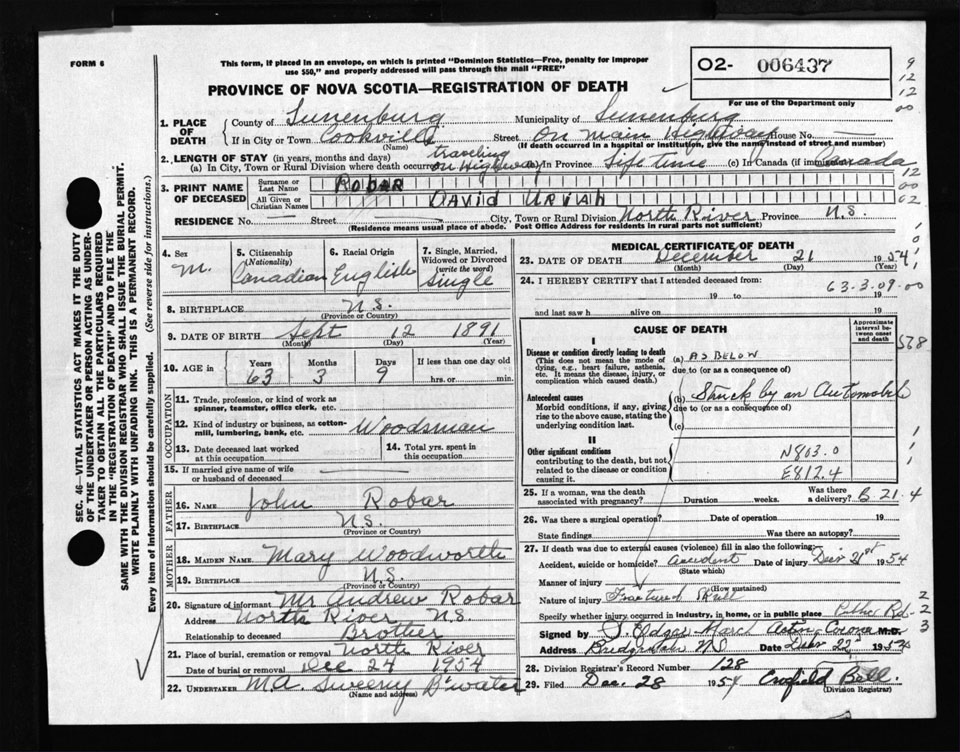 FORM 6
This form, if placed in an envelope, on which is printed "Dominion Statistics—Free, penalty for improper
use $50," and properly addressed will pass through the mail "FREE"
O2- 006437
For use of the Department only
9
12
12
00
PROVINCE OF NOVA SCOTIA—REGISTRATION OF DEATH
1. PLACE OF DEATH
County of Lunenburg Municipality of Lunenburg
If in City or Town Cookville Street On Main Highway House No. —
(Name) (If death occurred in a hospital or institution, give the name instead of street and number)
2. LENGTH OF STAY (in years, months and days)
(a) In City, Town or Rural Division where death occurred traveling on Highway (b) In Province Life time (c) In Canada (if immigrant) Canada
12
00
02
3. PRINT NAME OF DECEASED
Surname or Last Name ROBAR
All Given or Christian Names DAVID URIAH
RESIDENCE No. — Street City, Town or Rural Division North River Province N.S.
(Residence means usual place of abode. Post Office Address for residents in rural parts not sufficient)
4. Sex
M.
5. Citizenship
(Nationality)
Canadian
6. Racial Origin
English
7. Single, Married,
Widowed or Divorced
(write the word)
Single
8. BIRTHPLACE N.S.
(Province or Country)
9. DATE OF BIRTH Sept 12 1891
(Month) (Day) (Year)
10. AGE in
Years Months Days If less than one day old
63 3 9 hrs. or min.
OCCUPATION
11. Trade, profession, or kind of work as
spinner, teamster, office clerk, etc.
12. Kind of industry or business, as cotton-
mill, lumbering, bank, etc. Woodsman
13. Date deceased last worked
at this occupation
14. Total yrs. spent in
this occupation
15. If married give name of wife
or husband of deceased
FATHER
16. NAME John Robar
17. BIRTHPLACE N.S.
(Province or Country)
MOTHER
18. MAIDEN NAME Mary Woodworth
19. BIRTHPLACE N.S.
(Province or Country)
20. Signature of informant Mr Andrew Robar
Address North River N.S.
Relationship to deceased Brother
21. Place of burial, cremation or removal North River
Date of burial or removal Dec 24 1954
22. UNDERTAKER M.A. Sweeny B'water
(Name and address)
MEDICAL CERTIFICATE OF DEATH
23. DATE OF DEATH December 21 1954
(Month) (Day) (Year)
24. I HEREBY CERTIFY that I attended deceased from:
63-3.09.00
19 to 19
and last saw h alive on 19
CAUSE OF DEATH
Approximate interval between onset and death
578
I
Disease or condition directly leading to death
(This does not mean the mode of
dying, e.g., heart failure, asthenia,
etc. It means the disease, injury, or
complication which caused death.)
(a) AS BELOW
due to (or as a consequence of)
Antecedent causes
Morbid conditions, if any, giving
rise to the above cause, stating the
underlying condition last.
(b) Struck by an Automobile
due to (or as a consequence of)
(c)
II
Other significant conditions
contributing to the death, but not
related to the disease or condition
causing it.
N803.0
E812.4
25. If a woman, was the death
associated with pregnancy? Duration weeks. Was there a delivery?
B 21.4
26. Was there a surgical operation? Date of operation 19
State findings Was there an autopsy?
27. If death was due to external causes (violence) fill in also the following:
Accident, suicide or homicide? accident Date of injury Decr 21st 1954
(State which)
Manner of injury
(How sustained)
Nature of injury Fractured Skull
Specify whether injury occurred in industry, in home, or in public place Public Rd
2
2
3
Signed by J. Edgar March Acting Coroner M.D.
Address Bridgewater NS Date Decr 22 1954
28. Division Registrar's Record Number 128
29. Filed Dec. 28 1954 Bell
(Division Registrar)
SEC. 46—VITAL STATISTICS ACT MAKES IT THE DUTY
OF THE UNDERTAKER OR PERSON ACTING AS UNDER-
TAKER TO OBTAIN ALL THE PARTICULARS REQUIRED
IN THE "REGISTRATION OF DEATH" AND TO FILE THE
SAME WITH THE DIVISION REGISTRAR WHO SHALL ISSUE THE BURIAL PERMIT.
WRITE PLAINLY WITH UNFADING INK. THIS IS A PERMANENT RECORD.
Every item of information should be carefully supplied. (See reverse side for instructions.)